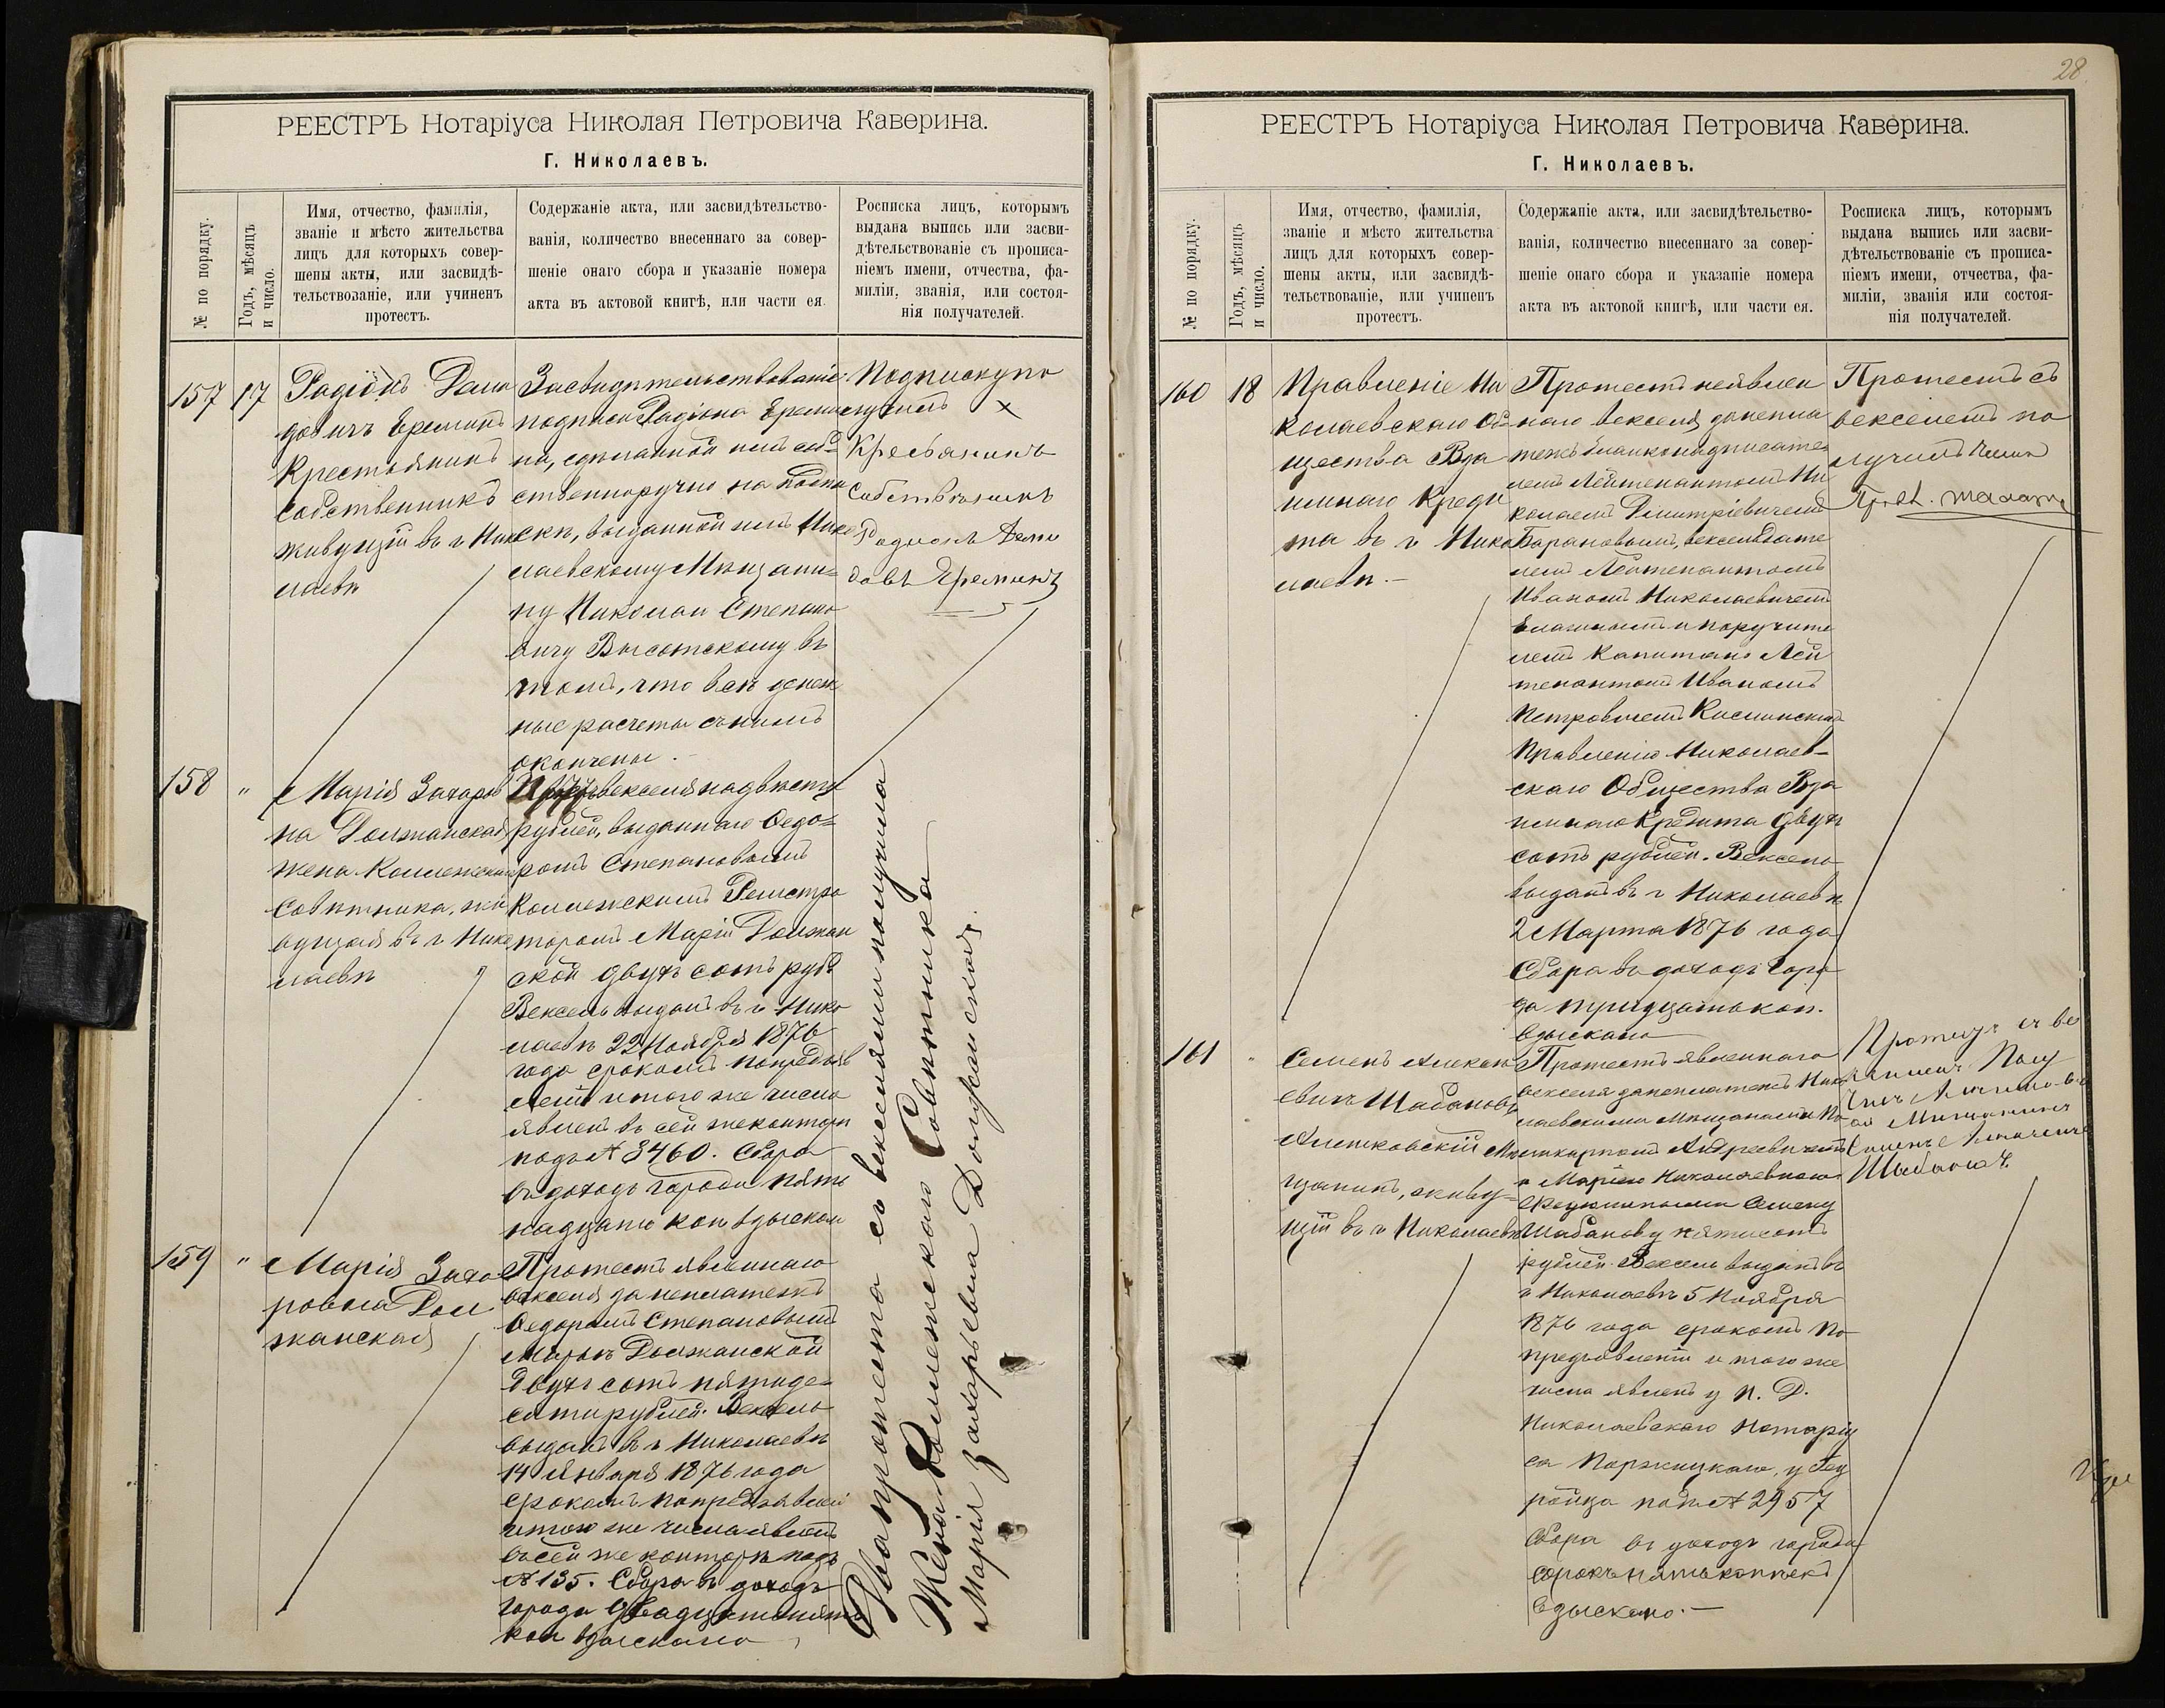 РЕЕСТРЪ Нотаріуса Николая Петровича Каверина.
Г. Николаевъ.
№ по порядку.
Годъ, мѣсяцъ
и число.
Имя, отчество, фамилія,
званіе и мѣсто жительства
лицъ для которыхъ совер-
шены акты, или засвидѣ-
тельствованіе, или учиненъ
протестъ.
Содержаніе акта, или засвидѣтельство-
ванія, количество внесеннаго за совер-
шеніе онаго сбора и указаніе номера
акта въ актовой книгѣ, или части ея.
Росписка лицъ, которымъ
выдана выпись или засви-
дѣтельствованіе съ прописа-
ніемъ имени, отчества, фа-
миліи, званія, или состоя-
нія получателей.
157
17
Радіонъ Деми
довичъ Ереминъ
Крестьянинъ
собственникъ
живущій въ г Нико
лаевѣ
Засвидѣтельствованіе
подписи Радіона Ереми
на, сдѣланной имъ соб-
ственноручно на подпи
скѣ, выданной имъ Нико
лаевскому Мѣщани-
ну Николаю Степано
вичу Высотскому въ
томъ, что всѣ денеж
ные расчеты съ нимъ
окончены.
Подписку по
лучилъ
Крестьянинъ
Собственникъ
Родионъ Деми
довъ Яреминъ
158
"
Марія Захаров
на Должанская
жена Коллежскаго
Совѣтника, жи
вущая въ г Нико
лаевѣ
векселя на двѣсти
рублей, выданнаго Ѳедо-
ромъ Степановымъ
Коллежскимъ Регистра
торомъ Маріи Должан
ской двухъ сотъ руб
Вексель выданъ въ г Нико
лаевѣ 22 Ноября 1876
года срокомъ по предъяв
леніи и того же числа
явленъ въ сей же конторѣ
подъ № 3460. Сбора
въ доходъ города пять
надцать коп взыскано
159
"
Марія Заха
ровна Дол
жанская
Протестъ явленнаго
векселя за неплатежъ
Ѳедоромъ Степановымъ
Маріи Должанской
двухъ сотъ пятиде-
сяти рублей. Вексель
выданъ въ г Николаевѣ
14 Января 1876 года
срокомъ по предъявлен
и того же числа явленъ
въ сей же конторѣ подъ
№ 135. Сбора въ доходъ
города двадцать пять
коп взыскано
Два протеста съ векселями получила
Жена Коллежскаго Совѣтника
Марія Захарьевна Должанская.
28.
РЕЕСТРЪ Нотаріуса Николая Петровича Каверина.
Г. Николаевъ.
№ по порядку.
Годъ, мѣсяцъ
и число.
Имя, отчество, фамилія,
званіе и мѣсто жительства
лицъ для которыхъ совер-
шены акты, или засвидѣ-
тельствованіе, или учиненъ
протестъ.
Содержаніе акта, или засвидѣтельство-
ванія, количество внесеннаго за совер-
шеніе онаго сбора и указаніе номера
акта въ актовой книгѣ, или части ея.
Росписка лицъ, которымъ
выдана выпись или засви-
дѣтельствованіе съ прописа-
ніемъ имени, отчества, фа-
миліи, званія или состоя-
нія получателей.
160
18
Правленіе Ни
колаевскаго Об-
щества Вза
имнаго Креди
та въ г Нико
лаевѣ.
Протестъ неявлен
наго векселя за непла
тежъ бланконадписате
лемъ Лейтенантомъ Ни
колаемъ Димитріевичемъ
Барановымъ, векселедате
лемъ Лейтенантомъ
Иваномъ Николаевичемъ
и поручите
лемъ Капитанъ Лей
тенантомъ Иваномъ
Петровичемъ
Правленію Николаев-
скаго Общества Вза
имнаго Кредита двухъ
сотъ рублей. Вексель
выданъ въ г Николаевѣ
2 Марта 1876 года
Сбора въ доходъ горо
да тридцать коп.
взыскано
Протестъ съ
векселемъ по
лучилъ Членъ
161
"
Семенъ Алексѣ
евичъ Шабановъ
Алешковскій Мѣ
щанинъ, живу-
щій въ г Николаевѣ
Протестъ явленнаго
векселя за неплатежъ Нико
лаевскими Мѣщанами По-
ликарпомъ Андреевичемъ
и Маріею Николаевною
Семену
Шабанову пятисотъ
рублей. Вексель выданъ въ
г Николаевѣ 5 Ноября
1876 года срокомъ по
предъявленіи и того же
числа явленъ у И. Д.
Николаевскаго Нотаріу
са
подъ № 2957
Сбора въ доходъ города
сорокъ пять копѣекъ
взыскано.
Протестъ съ ве
Полу
чилъ
Мещанинъ
Семенъ Алексеевъ
Шабановъ